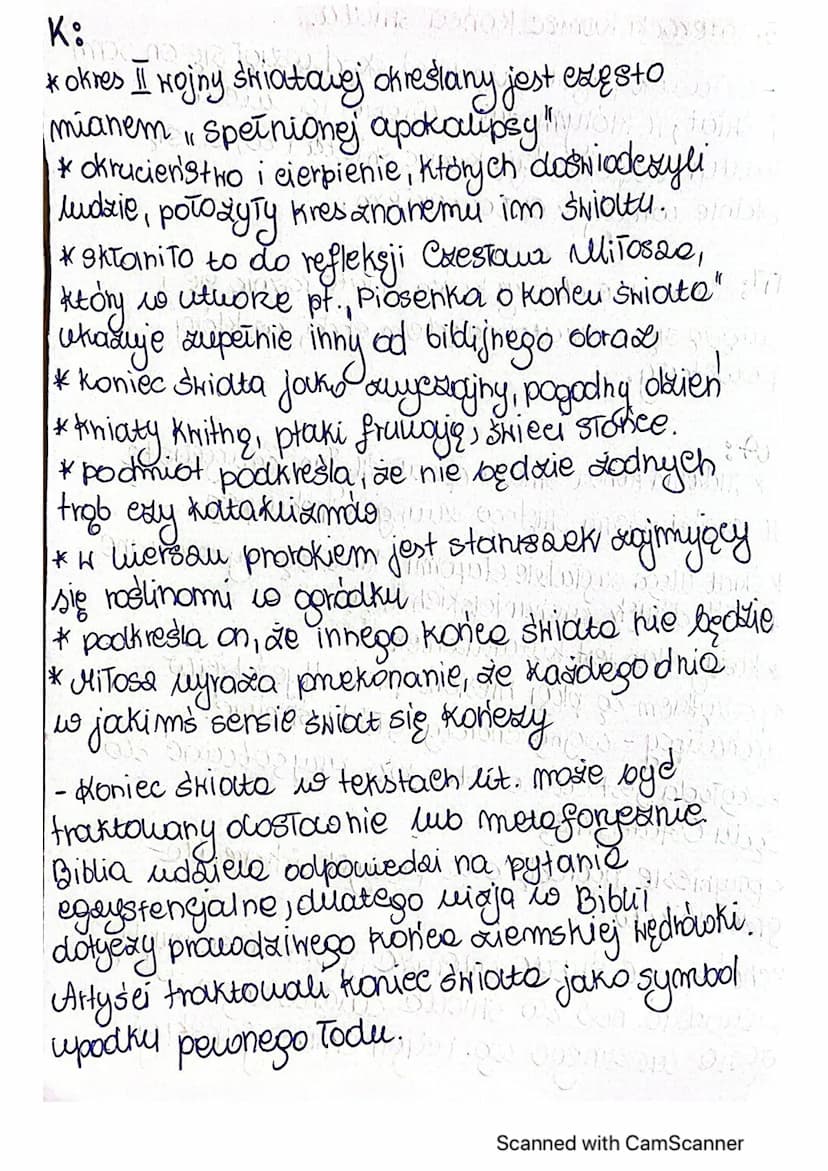 K:
* okres II wojny światowej określany jest często
mianem „spełnionej apokalipsy"
* okrucieństwo i cierpienie, których doświadczyli
ludzie, położyły kres znanemu im światu.
* skłoniło to do refleksji Czesława Miłosza,
który w utworze pt. „Piosenka o końcu świata"
ukazuje zupełnie inny od biblijnego obraz
* koniec świata jako zwyczajny, pogodny dzień
* kwiaty kwitną, ptaki fruwają, świeci słońce.
* podmiot podkreśla, że nie będzie żadnych
trąb czy kataklizmów
* w wierszu prorokiem jest staruszek zajmujący
się roślinami w ogródku
* podkreśla on, że innego końca świata nie będzie
* Miłosz wyraża przekonanie, że każdego dnia
w jakimś sensie świat się kończy
- Koniec świata w tekstach lit. może być
traktowany dosłownie lub metaforycznie.
Biblia udziela odpowiedzi na pytania
egzystencjalne, dlatego wizja w Biblii
dotyczy prawdziwego końca ziemskiej wędrówki.
Artyści traktowali koniec świata jako symbol
upadku pewnego ładu.
Scanned with CamScanner